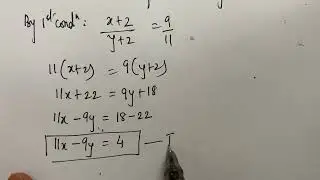 By 1st condn: x+2/y+2 = 9/11
11(x+2) = 9(y+2)
11x+22 = 9y+18
11x-9y = 18-22
11x-9y = 4 — I